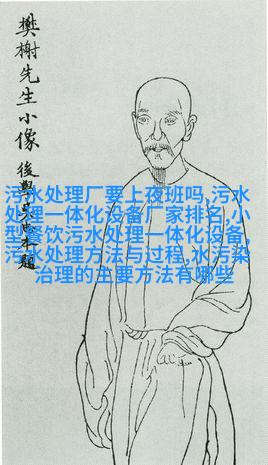 樊榭先生小像
後學
污水处理厂要上夜班吗,污水
处理一体化设备厂家排名,小
型餐饮污水处理一体化设备,
污水处理方法与过程,水污染
治理的主要方法有哪些